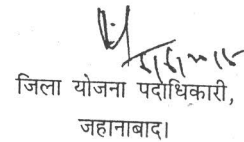 जिला योजना पदाधिकारी,
जहानाबाद।